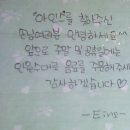 "아인"를 찾아주신
손님여러분 안녕하세요
앞으로 주말 및 공휴일에는
인원수대로 음료를 주문해주시면
감사하겠습니다 ♡
- Eins -